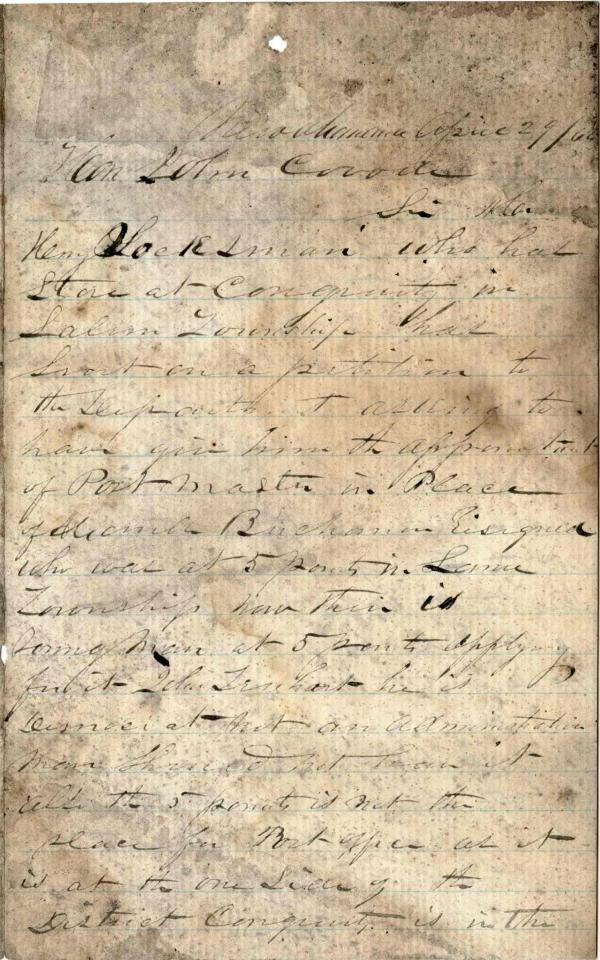 April 29/66
Hon John Covode
Sir Mr
Henry Clocksman who has
Store at Congruity in
Salem Township has
on a petition to
the Department asking to
have give him the appointment
of Post Master in Place
of Buchanan Resigned
who was at 5 points in Same
Township now their is
young Man at 5 points applying
for it John he is
Democrat but an administration
Man Should not have it
all the 5 points is not the
place for Post office as it
is at the one Side of the
District Congruity is in the